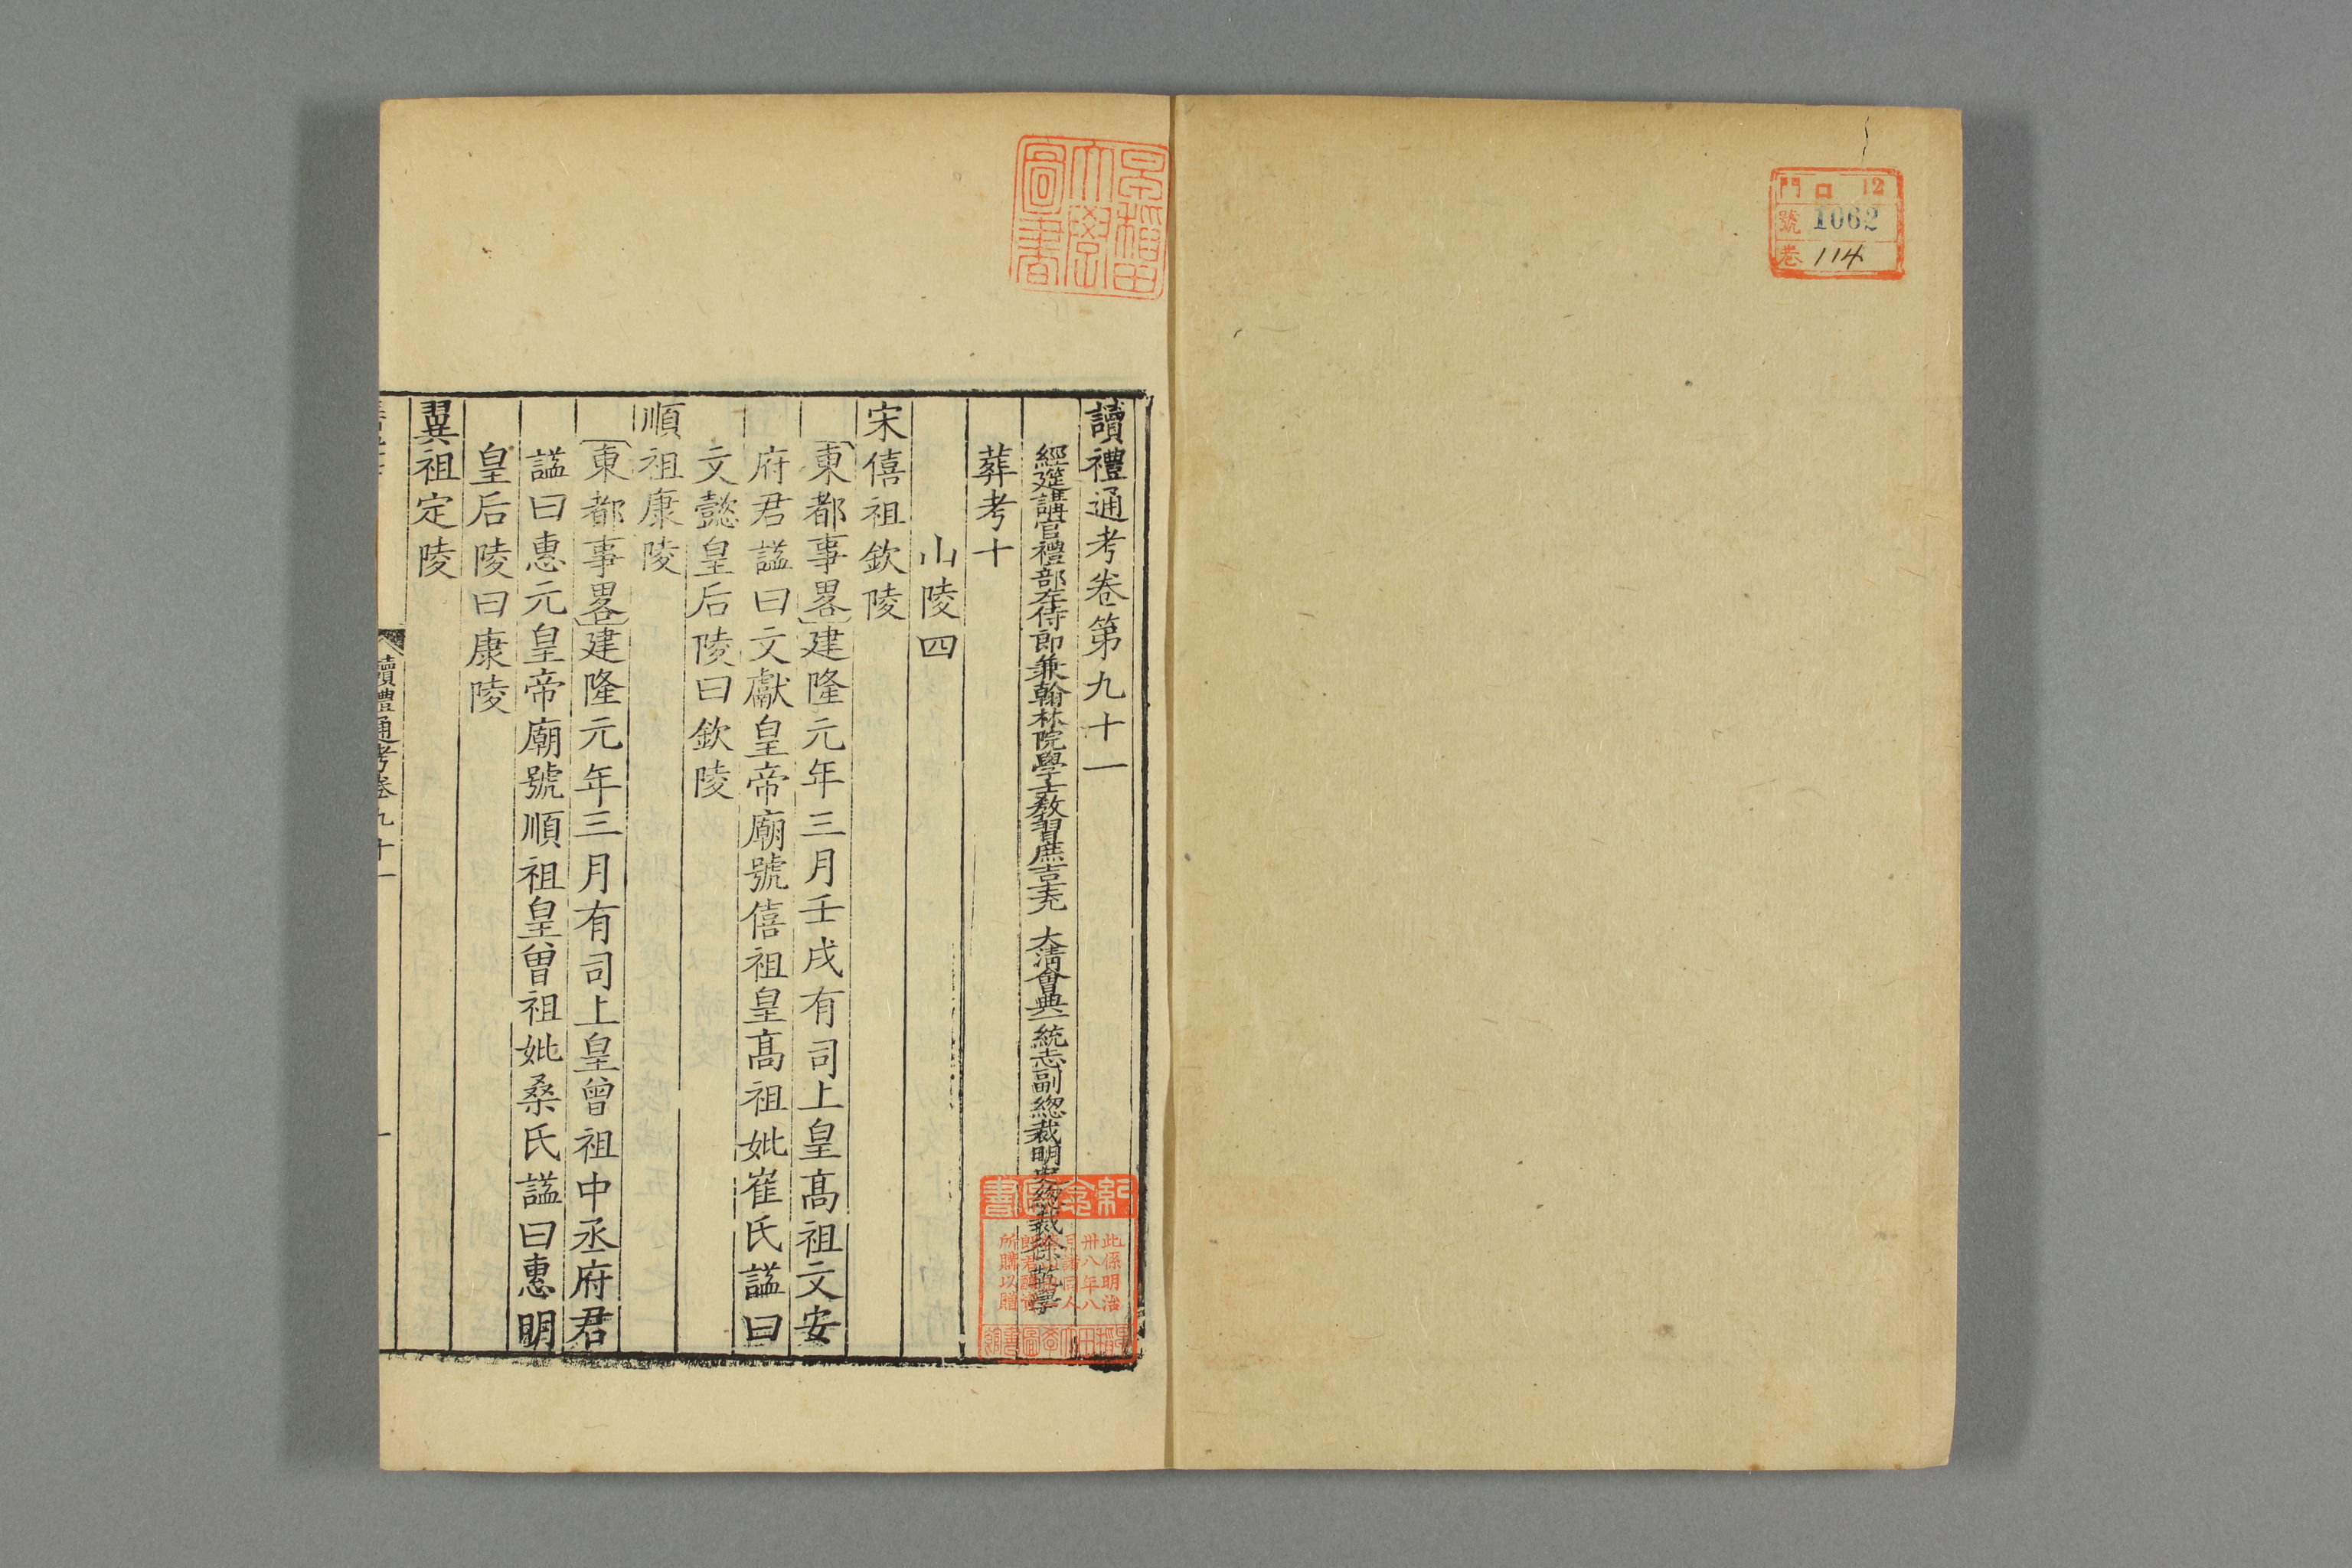 門 口 12
號 1062
卷 114
早稻田大學圖書
讀禮通考卷第九十一
經筵講官禮部左侍郎兼翰林院學士教習庶吉士充 大清會典一統志副總裁明史總裁徐乾學
葬考十
山陵四
宋僖祖欽陵
東都事畧建隆元年三月壬戌有司上皇高祖文安
府君謚曰文獻皇帝廟號僖祖皇高祖妣崔氏謚曰
文懿皇后陵曰欽陵
順祖康陵
東都事畧建隆元年三月有司上皇曾祖中丞府君
謚曰惠元皇帝廟號順祖皇曾祖妣桑氏謚曰惠明
皇后陵曰康陵
翼祖定陵
讀禮通考卷九十一
一
紀念圖書
此係明治
卅八年八
月諸同人
所購以贈
早稻田大學圖書館